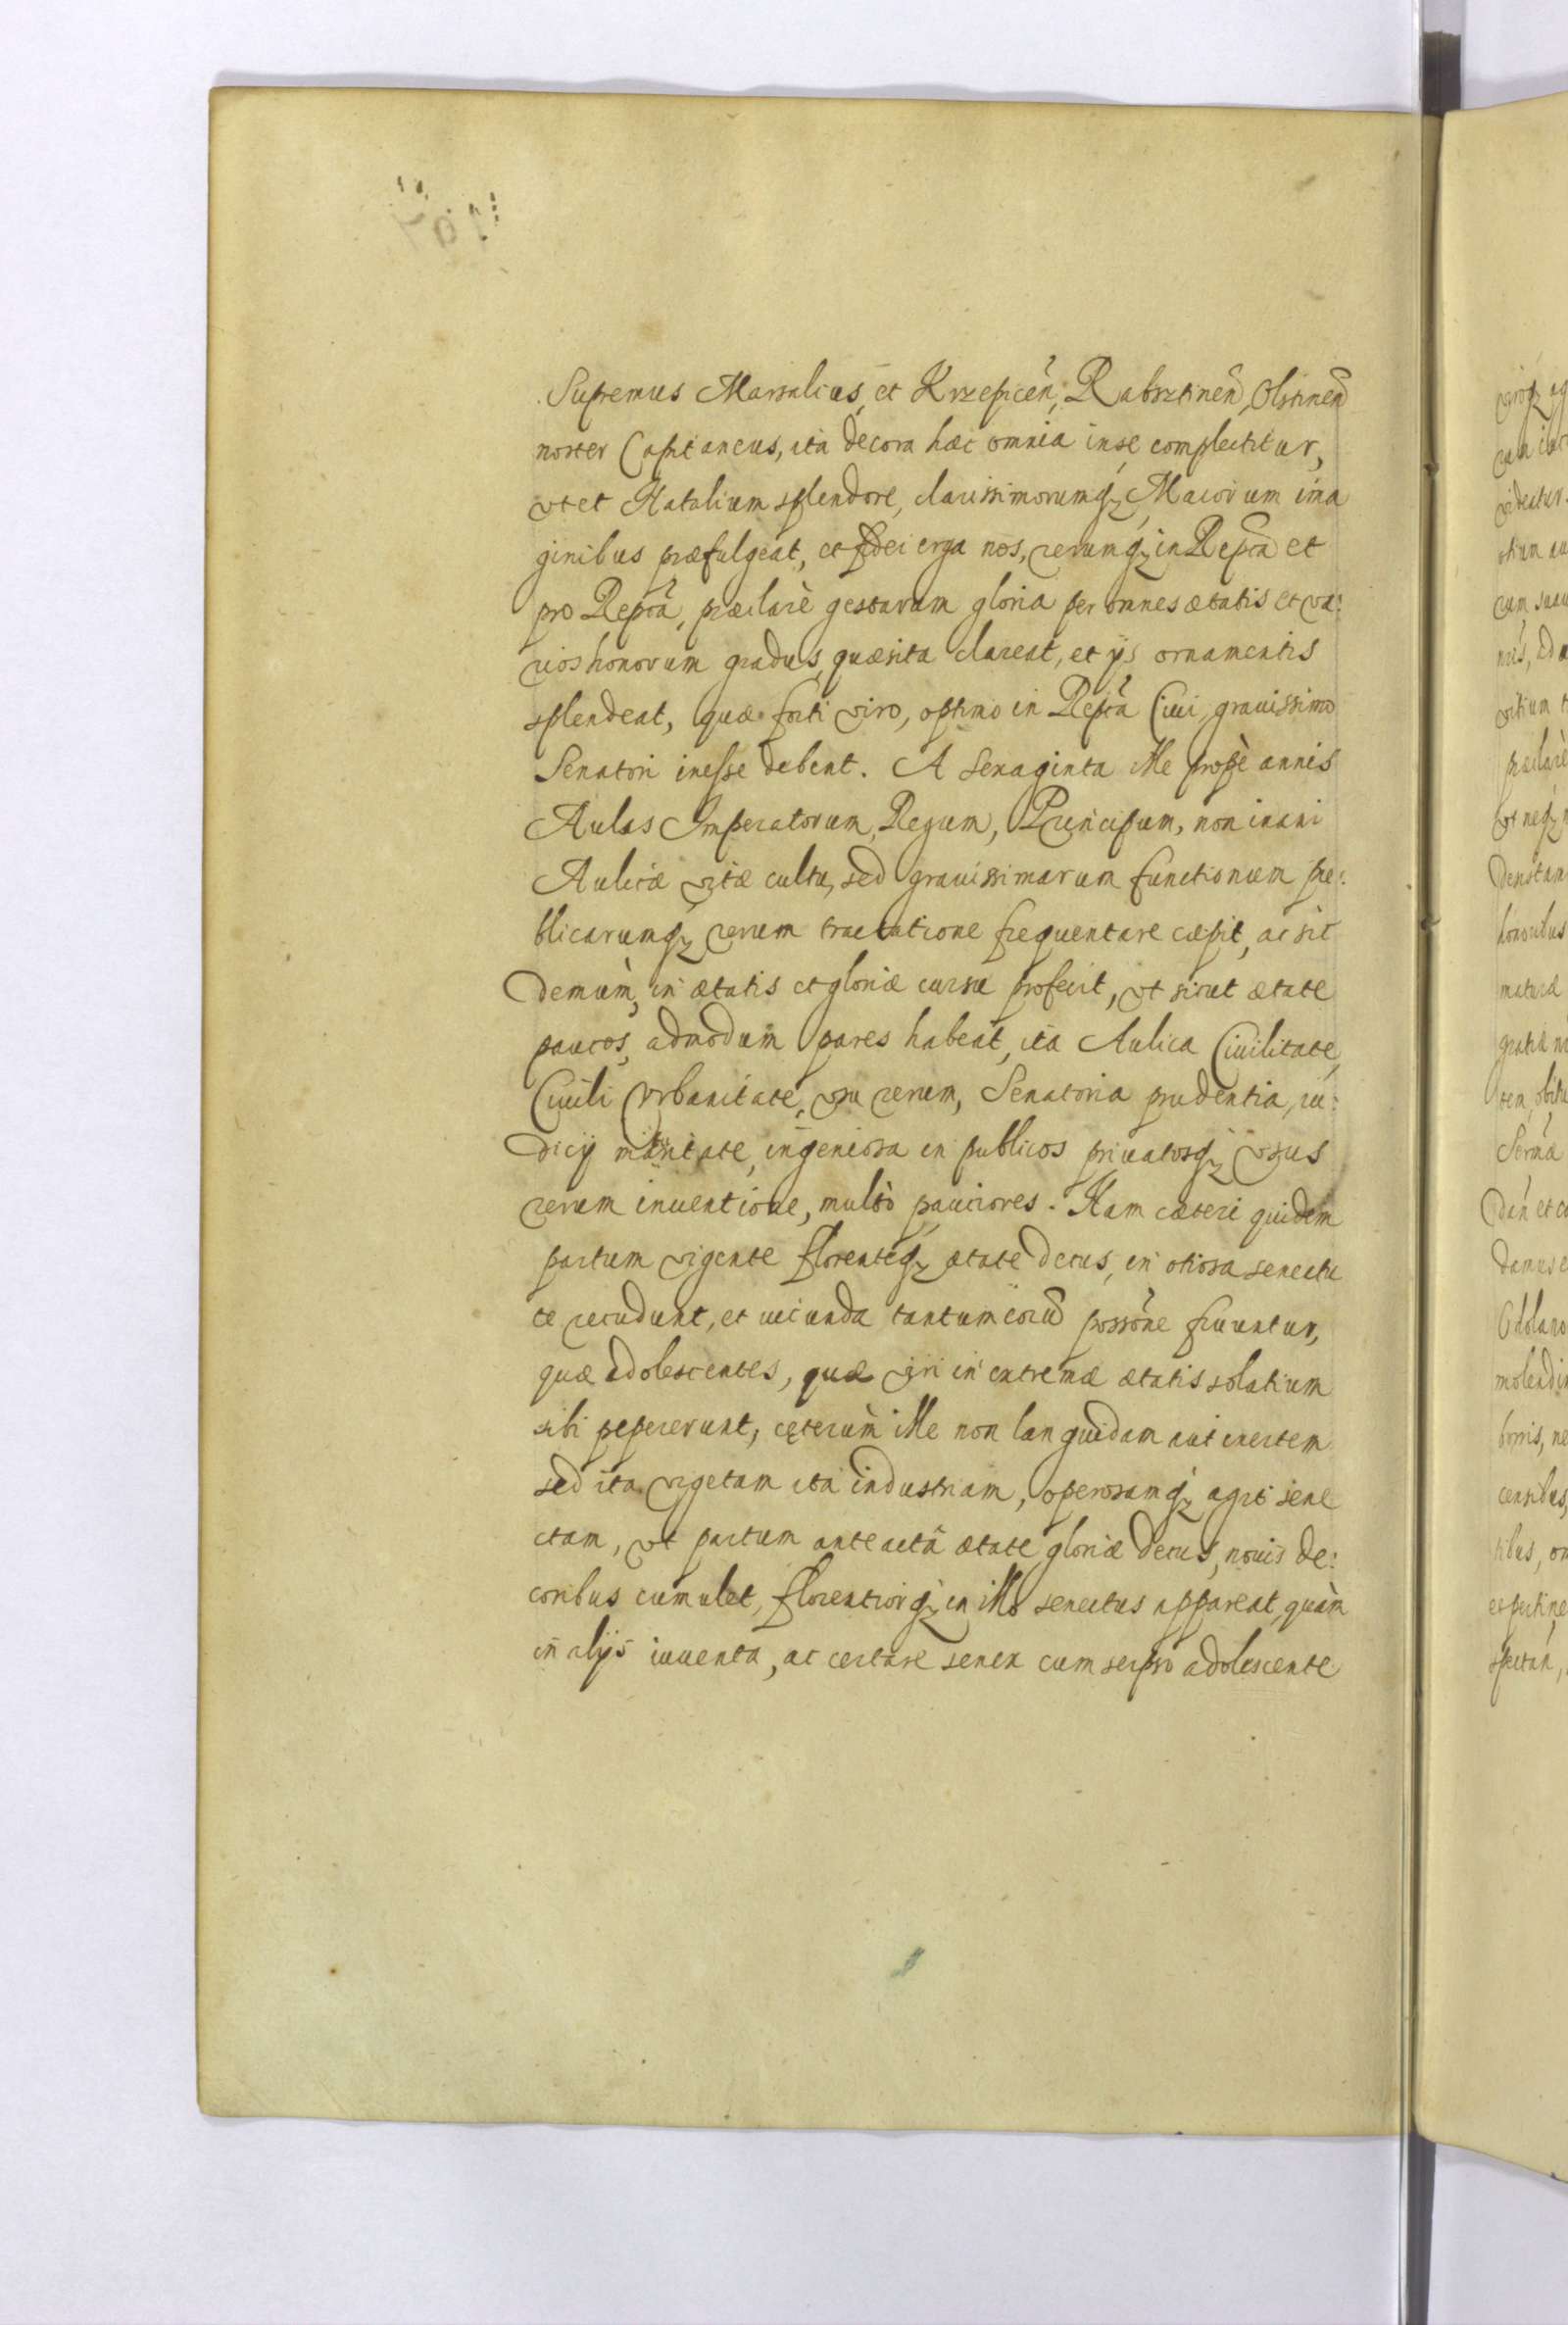 Supremus Marsalcus, et Krzepiceñ, Rabsztineñ, Olstineñ
noster Capitaneus, ita decora hæc omnia in se complectitur,
vt et Natalium splendore, clarissimorumq; Maiorum ima
ginibus præfulgeat, et fidei erga nos, rerumq; in Repca et
pro Repca, præclarè gestarum gloria per omnes ætatis et va:
rios honorum gradus, quæsita clareat, et ijs ornamentis
splendeat, quæ forti viro, optimo in Repca Ciui, grauissimo
Senatori inesse debent. A sexaginta ille propè annis
Aulas Imperatorum, Regum, Principum, non inani
Aulicæ vitæ cultu, sed grauissimarum functionum pu:
blicarumq; rerum tractatione frequentare cæpit, ac sic
demùm, in ætatis et gloriæ cursu profecit, vt sicut ætate
paucos, admodum pares habeat, ita Aulica Ciuilitate,
Ciuili Vrbanitate, vsu rerum, Senatoria prudentia, iu:
dicij maturitate, ingeniosa in publicos priuatosq; vsus
rerum inuentione, multò pauciores. Nam cæteri quidem
partum vigente florenteq; ætate decus, in otiosa senectu
te recudunt, et iucunda tantum eorũ possõne fruuntur,
quæ adolescentes, quæ viri in extremæ ætatis solatium
sibi pepererunt, cęterùm ille non languidam aut inertem
sed ita vigetam ita industriam, operosamq; agit sene
ctam, vt partum anteactâ ætate gloriæ decus, nouis de:
coribus cumulet, florentiorq; in illo senectus appareat, quàm
in alijs iuuenta, ac certare senex cum seipso adolescente